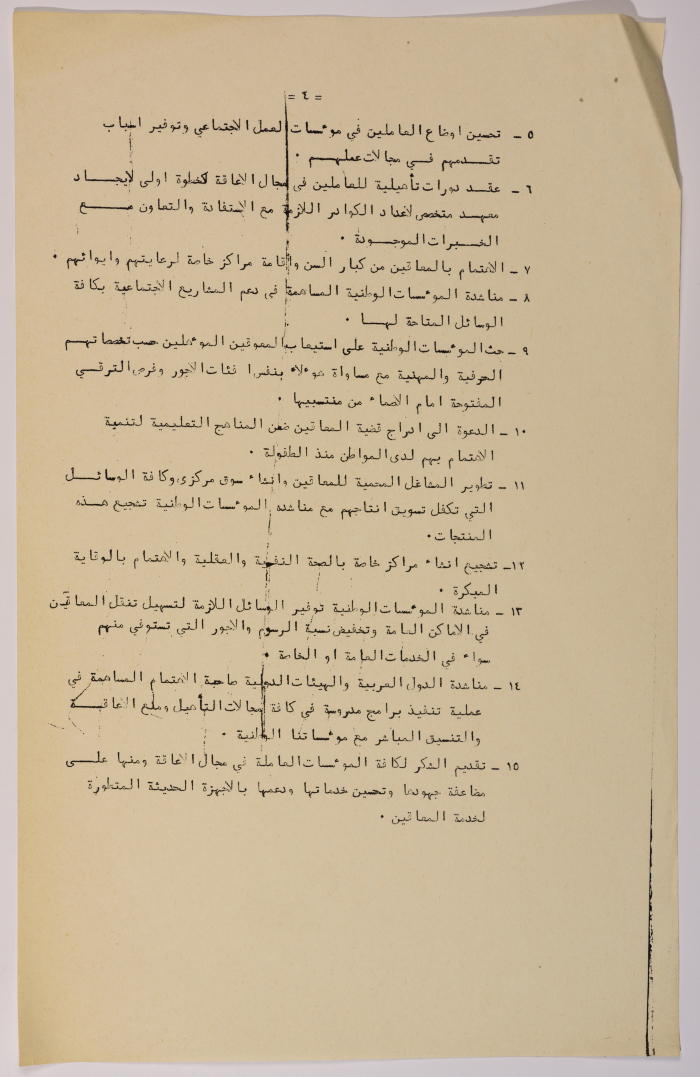 = ٤ =
٥ - تحسين اوضاع العاملين في موءسسات العمل الاجتماعي وتوفير اسباب
تقدمهم في مجالات عملهم ٠
٦ - عقد دورات تأهيلية للعاملين في مجال الاعاقة كخطوة اولى لايجاد
معهد متخصص لاعداد الكوادر اللازمة مع الاستفادة والتعاون مع
الخبرات الموجودة ٠
٧ - الاهتمام بالمعاقين من كبار السن واقامة مراكز خاصة لرعايتهم وايوائهم ٠
٨ - مناشدة الموءسسات الوطنية المساهمة في دعم المشاريع الاجتماعية بكافة
الوسائل المتاحة لها ٠
٩ - حث الموءسسات الوطنية على استيعاب المعوقين الموءهلين حسب تخصصاتهم
الحرفية والمهنية مع مساواة هوءلاء بنفس فئات الاجور وفرص الترقي
المفتوحة امام الاصحاء من منتسبيها ٠
١٠ - الدعوة الى ادراج قضية المعاقين ضمن المناهج التعليمية لتنمية
الاهتمام بهم لدى المواطن منذ الطفولة ٠
١١ - تطوير المشاغل المحمية للمعاقين وانشاء سوق مركزي وكافة الوسائل
التي تكفل تسويق انتاجهم مع مناشدة الموءسسات الوطنية تشجيع هذه
المنتجات٠
١٢- تشجيع انشاء مراكز خاصة بالصحة النفسية والعقلية والاهتمام بالوقاية
المبكرة ٠
١٣ - مناشدة الموءسسات الوطنية توفير الوسائل اللازمة لتسهيل تنقل المعاقين
في الاماكن العامة وتخفيض نسبة الرسوم والاجور التي تستوفي منهم
سواء في الخدمات العامة او الخاصة ٠
١٤ - مناشدة الدول العربية والهيئات الدولية صاحبة الاهتمام المساهمة في
عملية تنفيذ برامج مدروسة في كافة مجالات التأهيل ومنع الاعاقة
والتنسيق المباشر مع موءسساتنا الوطنية ٠
١٥ - تقديم الشكر لكافة الموءسسات العاملة في مجال الاعاقة ومنها على
مضاعفة جهودها وتحسين خدماتها ودعمها بالاجهزة الحديثة المتطورة
لخدمة المعاقين ٠